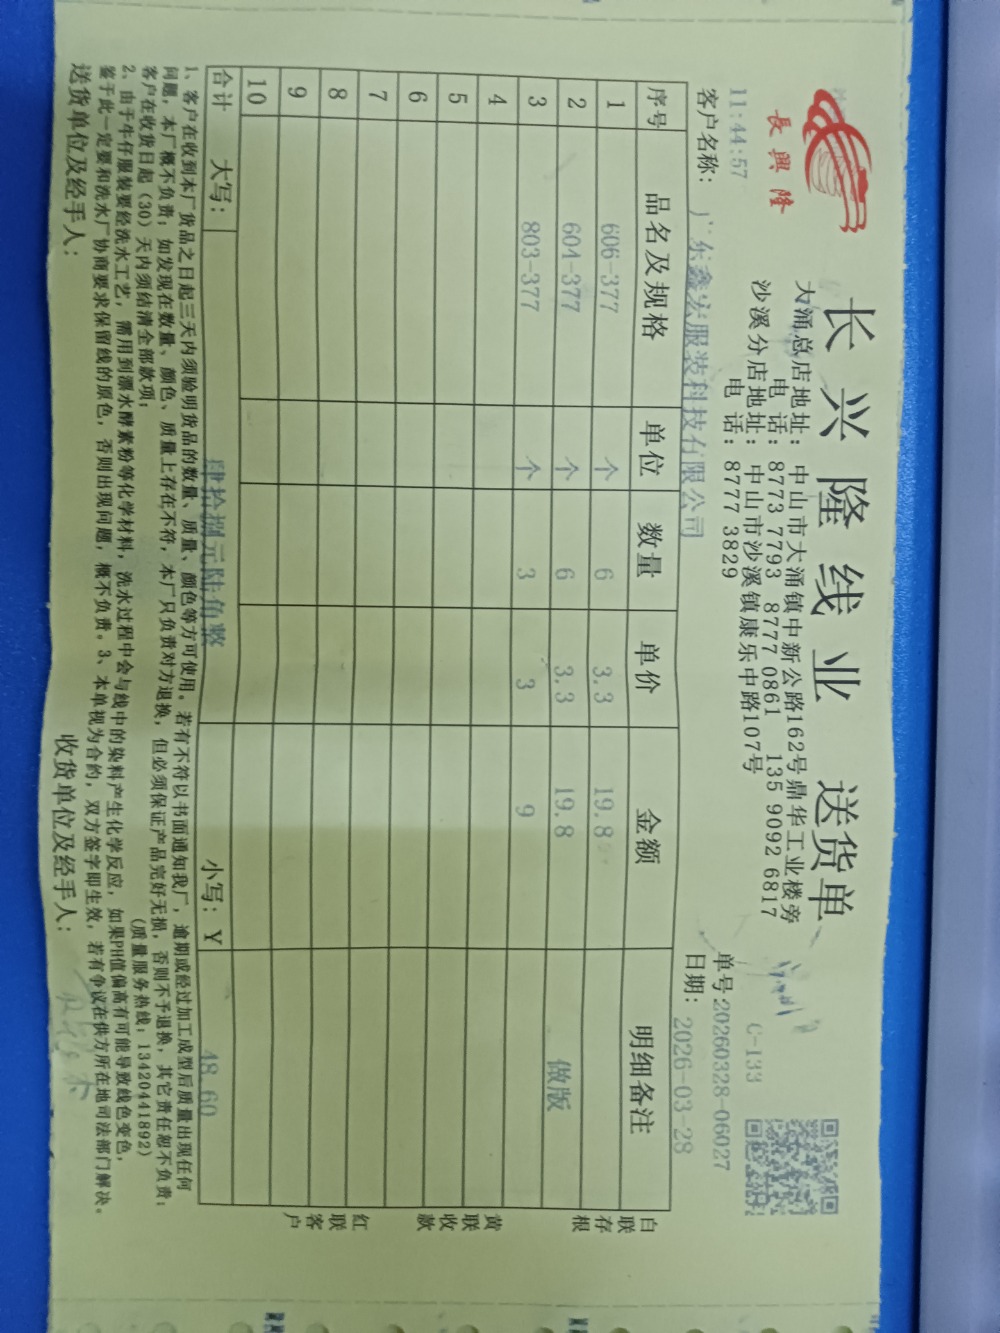 長興隆
长兴隆线业 送货单
大涌总店地址：中山市大涌镇中新公路162号鼎华工业楼旁
电 话：8773 7793 8777 0861 135 9092 6817
沙溪分店地址：中山市沙溪镇康乐中路107号
电 话：8777 3829
C-133
11:44:57
单号:20260328-06027
客户名称：广东鑫宏服装科技有限公司
日期：2026-03-28
序号 品名及规格 单位 数量 单价 金额 明细备注
1 606-377 个 6 3.3 19.8
2 604-377 个 6 3.3 19.8 做版
3 803-377 个 3 3 9
4
5
6
7
8
9
10
合计 大写：肆拾捌元陆角整 小写：￥ 48.60
白联存根
黄联收款
红联客户
1、客户在收到本厂货品之日起三天内须验明货品的数量、质量、颜色等方可使用。若有不符以书面通知我厂，逾期或经过加工成型后质量出现任何
问题，本厂概不负责；如发现在数量、颜色、质量上存在不符，本厂只负责对方退换，但必须保证产品完好无损，否则不予退换，其它责任恕不负责；
客户在收货日起（30）天内须结清全部款项；（质量服务热线：13420441892）
2、由于牛仔服装要经洗水工艺，需用到漂水酵素粉等化学材料，洗水过程中会与线中的染料产生化学反应，如果PH值偏高有可能导致线色变色，
鉴于此一定要和洗水厂协商要求保留线的原色，否则出现问题，概不负责。3、本单视为合约，双方签字即生效，若有争议在供方所在地司法部门解决。
送货单位及经手人：
收货单位及经手人：